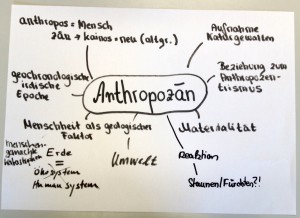 anthropos = Mensch
zän → kainos = neu (altgr.)
Aufnahme
Naturgewalten
geochronologische
irdische
Epoche
Beziehung zum
Anthropozen-
trismus
Anthropozän
Menschheit als geologischer
Faktor
Materialität
menschen-
gemachte
Erde
=
Ökosystem
Human system
Umwelt
Reaktion
Staunen/Fürchten?!